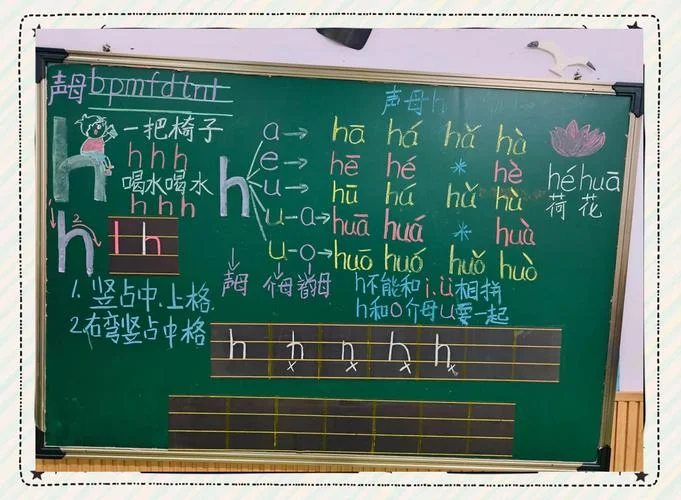 声母 bpmfdtnl
声母h
一把椅子
h h h
喝水喝水
h h h
h
2
h
l h
1. 竖占中、上格.
2.右弯竖占中格
h
a → hā há hǎ hà
e → hē hé * hè
u → hū hú hǔ hù
u-a→ huā huá * huà
u-o→ huó huó huǒ huò
声母 介母 韵母
héhuā
荷花
h不能和i.ü相拼
h和o介母u要一起
h h n h h
x x x x